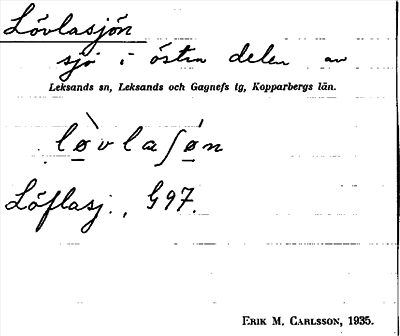 Lövlasjön
sjö i östra delen av
Leksands sn, Leksands och Gagnefs tg, Kopparbergs län.
lø̀vlaʃǿn
Löflasj:, G97.
ERIK M. CARLSSON, 1935.